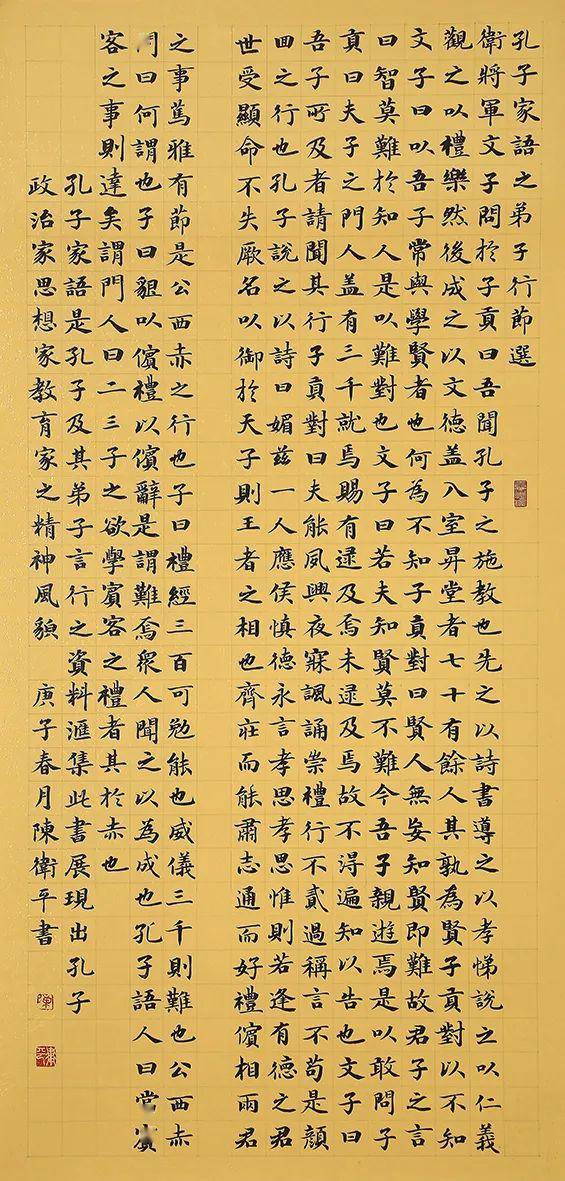 孔子家語之弟子行節選
衛將軍文子問於子貢曰吾聞孔子之施教也先之以詩書導之以孝悌說之以仁義
觀之以禮樂然後成之以文德盖入室昇堂者七十有餘人其孰為賢子貢對以不知
文子曰以吾子常與學賢者也何為不知子貢對曰賢人無妄知賢即難故君子之言
曰智莫難於知人是以難對也文子曰若夫知賢莫不難今吾子親遊焉是以敢問子
貢曰夫子之門人盖有三千就焉賜有逮及焉未逮及焉故不得遍知以告也文子曰
吾子所及者請聞其行子貢對曰夫能夙興夜寐諷誦崇禮行不貳過稱言不苟是顏
回之行也孔子說之以詩曰媚茲一人應侯慎德永言孝思孝思惟則若逢有德之君
世受顯命不失厥名以御於天子則王者之相也齊莊而能肅志通而好禮儐相兩君
之事篤雅有節是公西赤之行也子曰禮經三百可勉能也威儀三千則難也公西赤
問曰何謂也子曰貌以儐禮以儐辭是謂難焉衆人聞之以為成也孔子語人曰當賓
客之事則達矣謂門人曰二三子之欲學賓客之禮者其於赤也
孔子家語是孔子及其弟子言行之資料滙集此書展現出孔子
政治家思想家教育家之精神風貌 庚子春月陳衛平書